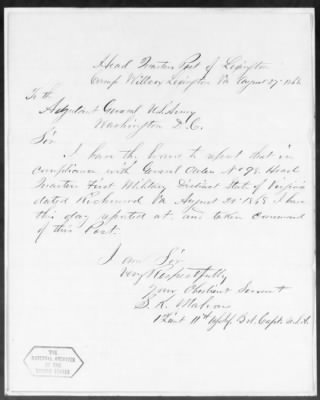 Head Quarters Post of Lexington
Camp Lexington Va August 27" 1868
To the
Adjutant General U.S. Army
Washington D.C.
Sir
I have the honor to report that in
compliance with General Orders No 98. Head
Quarters First Military District State of Virginia
dated Richmond Va August 20" 1868 I have
this day reported at and taken command
of this Post.
I am Sir
Very Respectfully
Your Obedient Servant
S. K.
1st Lieut 11th Inf. Bvt. Capt. U.S.A.
THE
NATIONAL ARCHIVES
OF THE
UNITED STATES